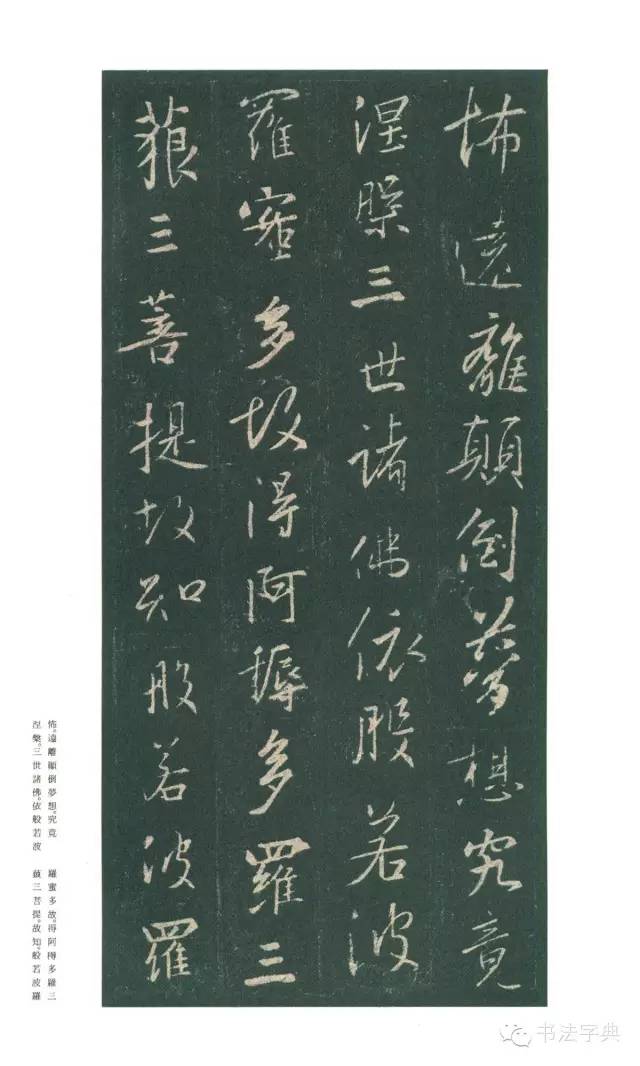 怖遠離顛倒夢想究竟
涅槃三世諸佛依般若波
羅蜜多故得阿耨多羅三
藐三菩提故知般若波羅
怖。遠離顛倒夢想。究竟
涅槃。三世諸佛。依般若波
羅蜜多故。得阿耨多羅三
藐三菩提。故知。般若波羅
书法字典